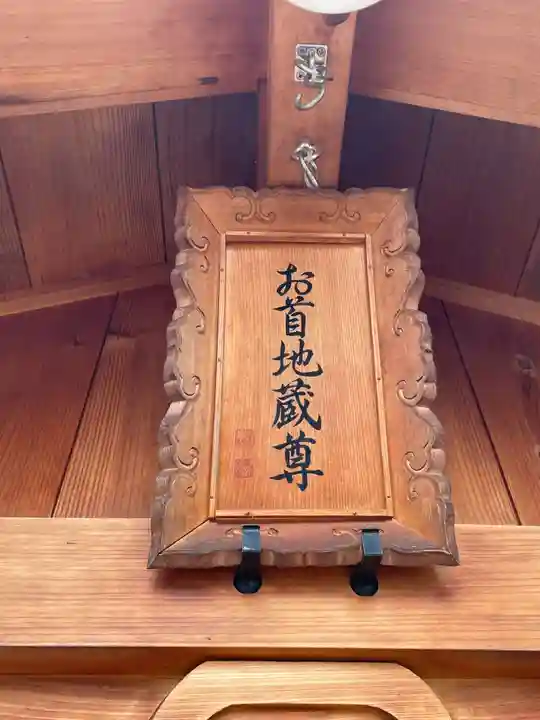 お首地蔵尊